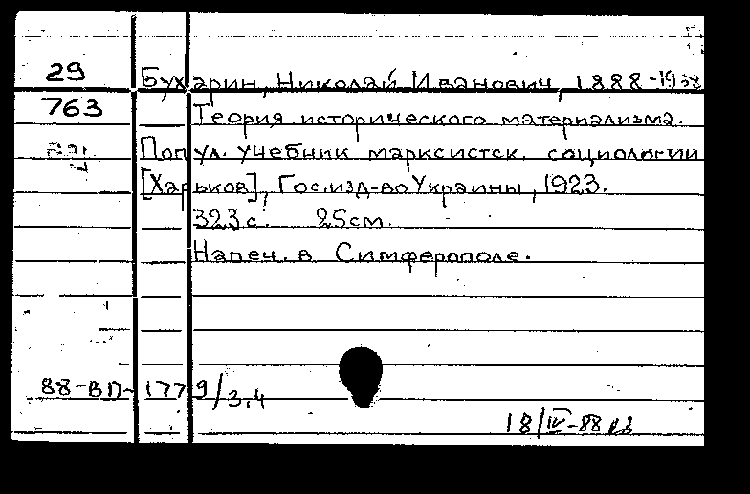 29 Бухарин, Николай Иванович, 1888-1938
763 Теория исторического материализма.
Попул. учебник марксистск. социологии
[Харьков], Гос.изд-во Украины, 1923.
323 с. 25 см.
Напеч. в Симферополе.
88-ВП-1779/3,4
18/IV-88